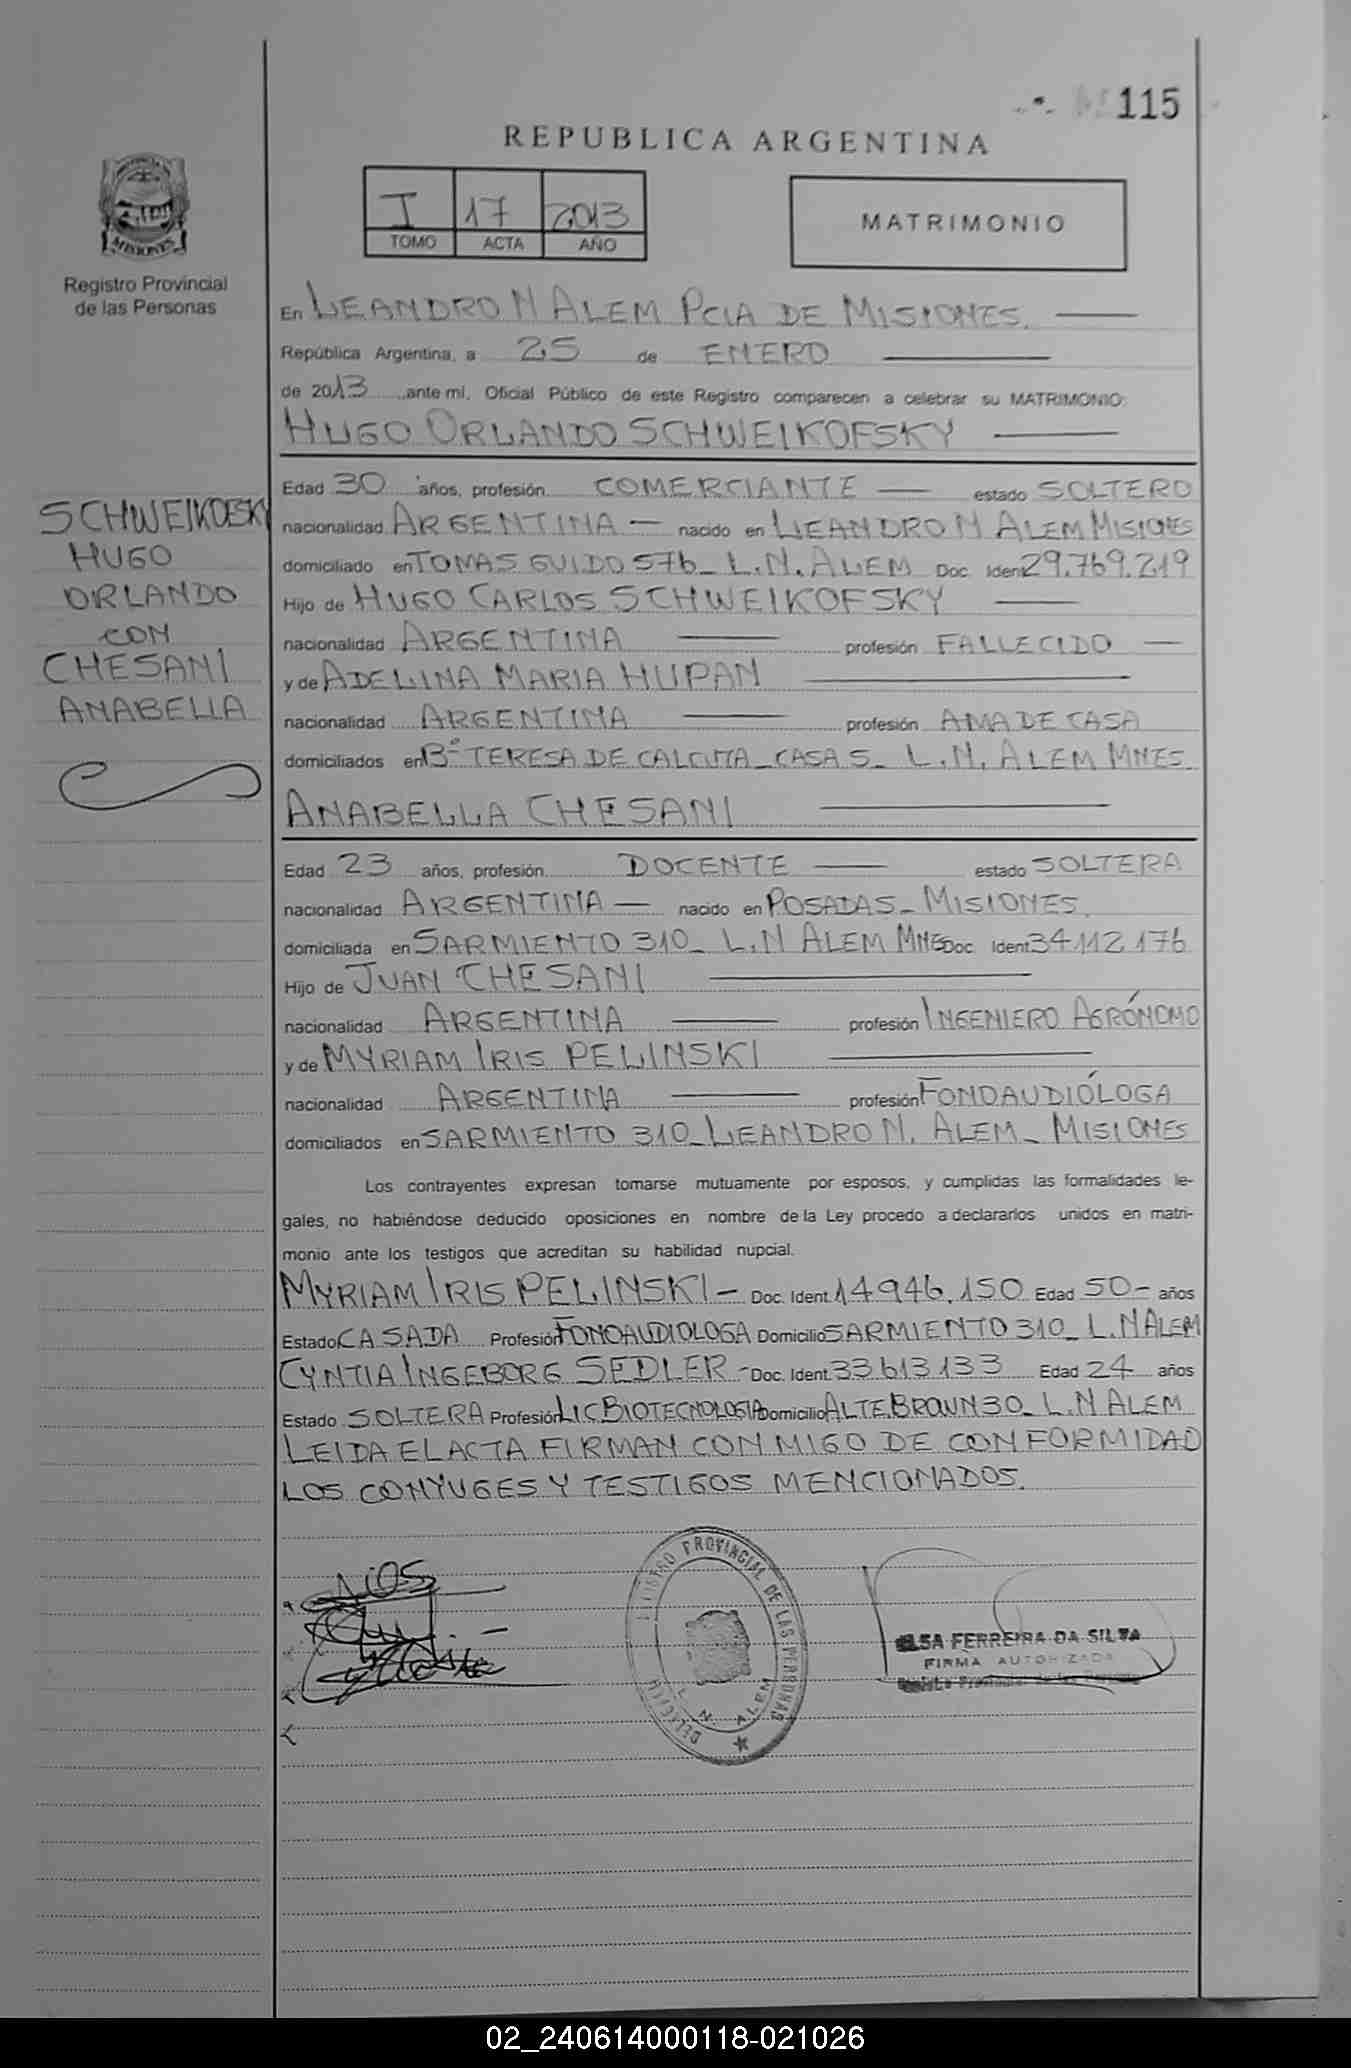 115
REPUBLICA ARGENTINA
I 17 2013
TOMO ACTA AÑO
MATRIMONIO
MISIONES
Registro Provincial
de las Personas
En LEANDRO N ALEM PCIA DE MISIONES.
República Argentina, a 25 de ENERO
de 2013 ante mí, Oficial Público de este Registro comparecen a celebrar su MATRIMONIO:
HUGO ORLANDO SCHWEIKOFSKY
Edad 30 años, profesión COMERCIANTE estado SOLTERO
nacionalidad ARGENTINA nacido en LEANDRO N ALEM MISIONES
domiciliado en TOMAS GUIDO 576_ L.N.ALEM Doc. Ident 29.769.219
Hijo de HUGO CARLOS SCHWEIKOFSKY
nacionalidad ARGENTINA profesión FALLECIDO
y de ADELINA MARIA HUPAN
nacionalidad ARGENTINA profesión AMA DE CASA
domiciliados en Bº TERESA DE CALCUTA_CASA 5_ L.N. ALEM MNES.
SCHWEIKOFSKY
HUGO
ORLANDO
CON
CHESANI
ANABELLA
ANABELLA CHESANI
Edad 23 años, profesión DOCENTE estado SOLTERA
nacionalidad ARGENTINA nacido en POSADAS_ MISIONES.
domiciliada en SARMIENTO 310_ L.N ALEM MNES Doc Ident 34.112.176
Hijo de JUAN CHESANI
nacionalidad ARGENTINA profesión INGENIERO AGRÓNOMO
y de MYRIAM IRIS PELINSKI
nacionalidad ARGENTINA profesión FONOAUDIÓLOGA
domiciliados en SARMIENTO 310_LEANDRO N. ALEM_ MISIONES
Los contrayentes expresan tomarse mutuamente por esposos, y cumplidas las formalidades le-
gales, no habiéndose deducido oposiciones en nombre de la Ley procedo a declararlos unidos en matri-
monio ante los testigos que acreditan su habilidad nupcial.
MYRIAM IRIS PELINSKI - Doc. Ident. 14.946.150 Edad 50- años
Estado CASADA Profesión FONOAUDIOLOGA Domicilio SARMIENTO 310_ L.N ALEM
CYNTIA INGEBORG SEDLER - Doc. Ident. 33.613.133 Edad 24 años
Estado SOLTERA Profesión LIC BIOTECNOLOGIA Domicilio ALTE.BROWN 30_ L.N ALEM
LEIDA EL ACTA FIRMAN CONMIGO DE CONFORMIDAD
LOS CONYUGES Y TESTIGOS MENCIONADOS.
REGISTRO PROVINCIAL DE LAS PERSONAS
L. N. ALEM
ELSA FERREIRA DA SILVA
FIRMA AUTORIZADA
02_240614000118-021026